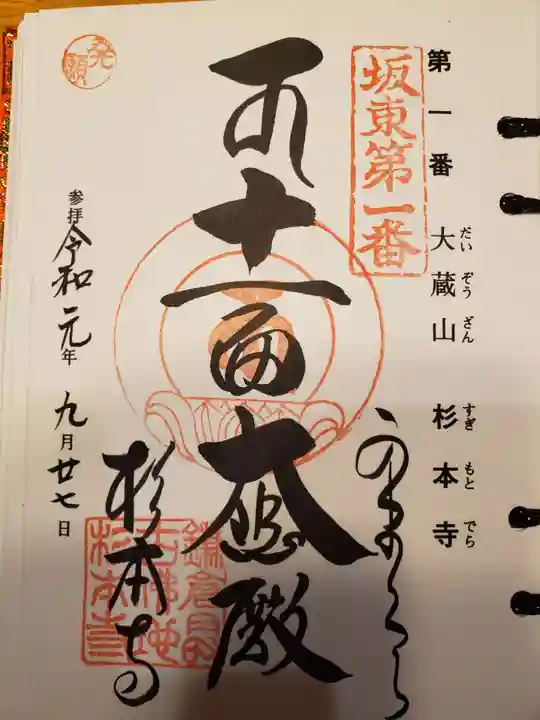 第一番 大蔵山 杉本寺
だいぞうざん すぎもとでら
坂東第一番
かまくら
十一面大悲殿
杉本寺
発願
参拝 令和元年 九月廿七日